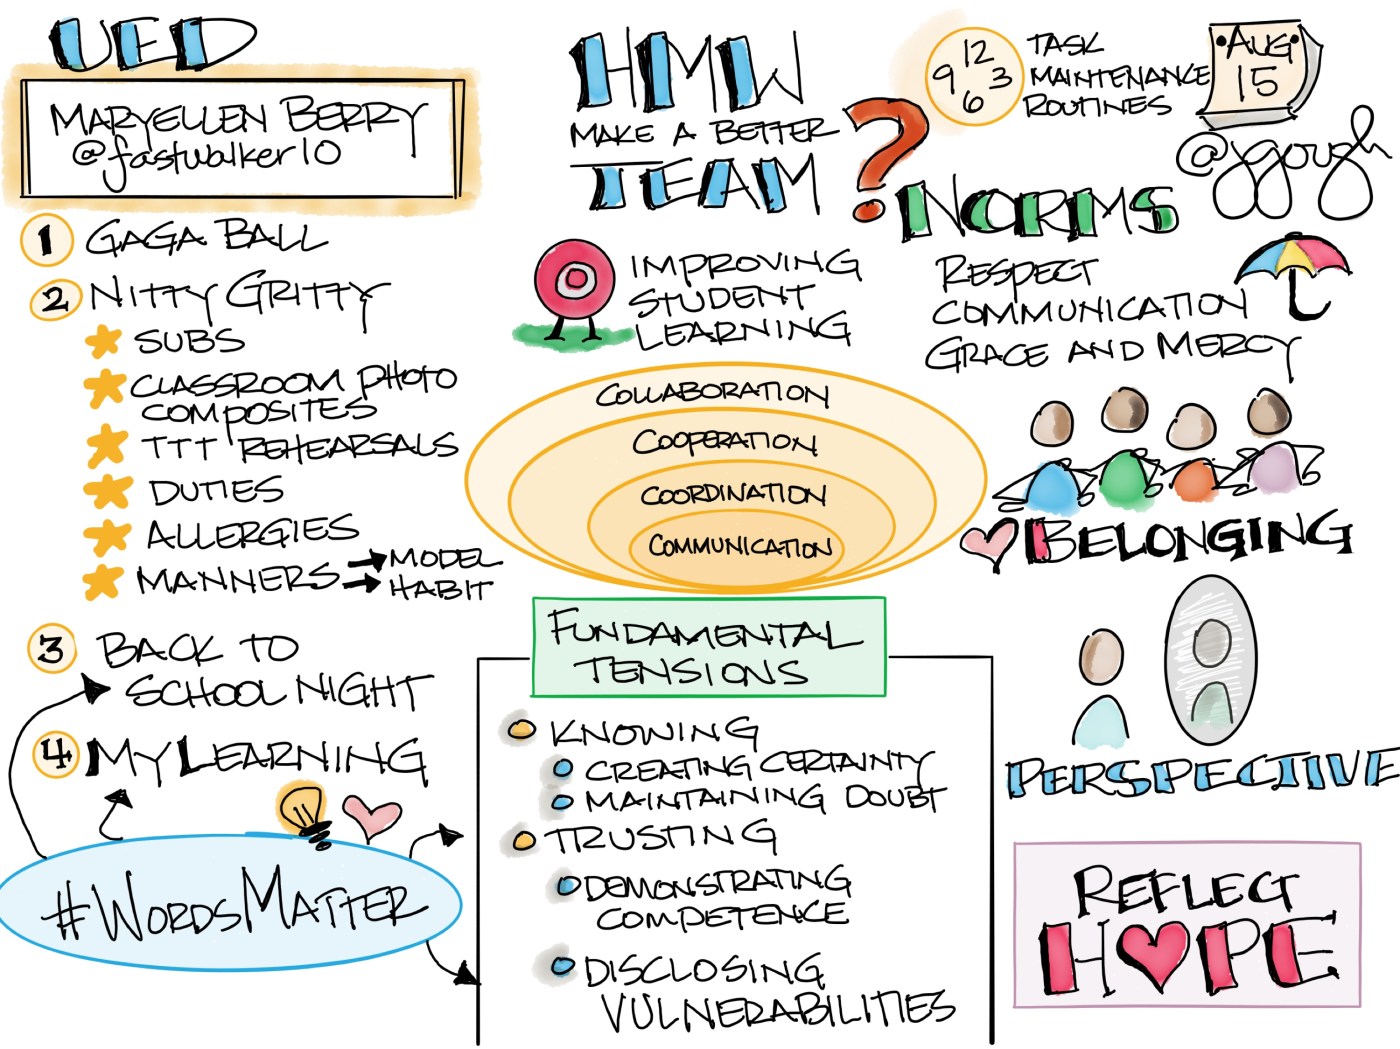 UED
MARYELLEN BERRY
@fastwalker10
1 GAGA BALL
2 NITTY GRITTY
SUBS
CLASSROOM PHOTO
COMPOSITES
TTT REHEARSALS
DUTIES
ALLERGIES
MANNERS → MODEL
→ HABIT
3 BACK TO
SCHOOL NIGHT
4 MY LEARNING
#WORDSMATTER
HMW
MAKE A BETTER
TEAM ?
IMPROVING
STUDENT
LEARNING
COLLABORATION
COOPERATION
COORDINATION
COMMUNICATION
FUNDAMENTAL
TENSIONS
KNOWING
CREATING CERTAINTY
MAINTAINING DOUBT
TRUSTING
DEMONSTRATING
COMPETENCE
DISCLOSING
VULNERABILITIES
12
9 3
6
TASK
MAINTENANCE
ROUTINES
AUG
15
@jgough
NORMS
RESPECT
COMMUNICATION
GRACE AND MERCY
BELONGING
PERSPECTIVE
REFLECT
HOPE